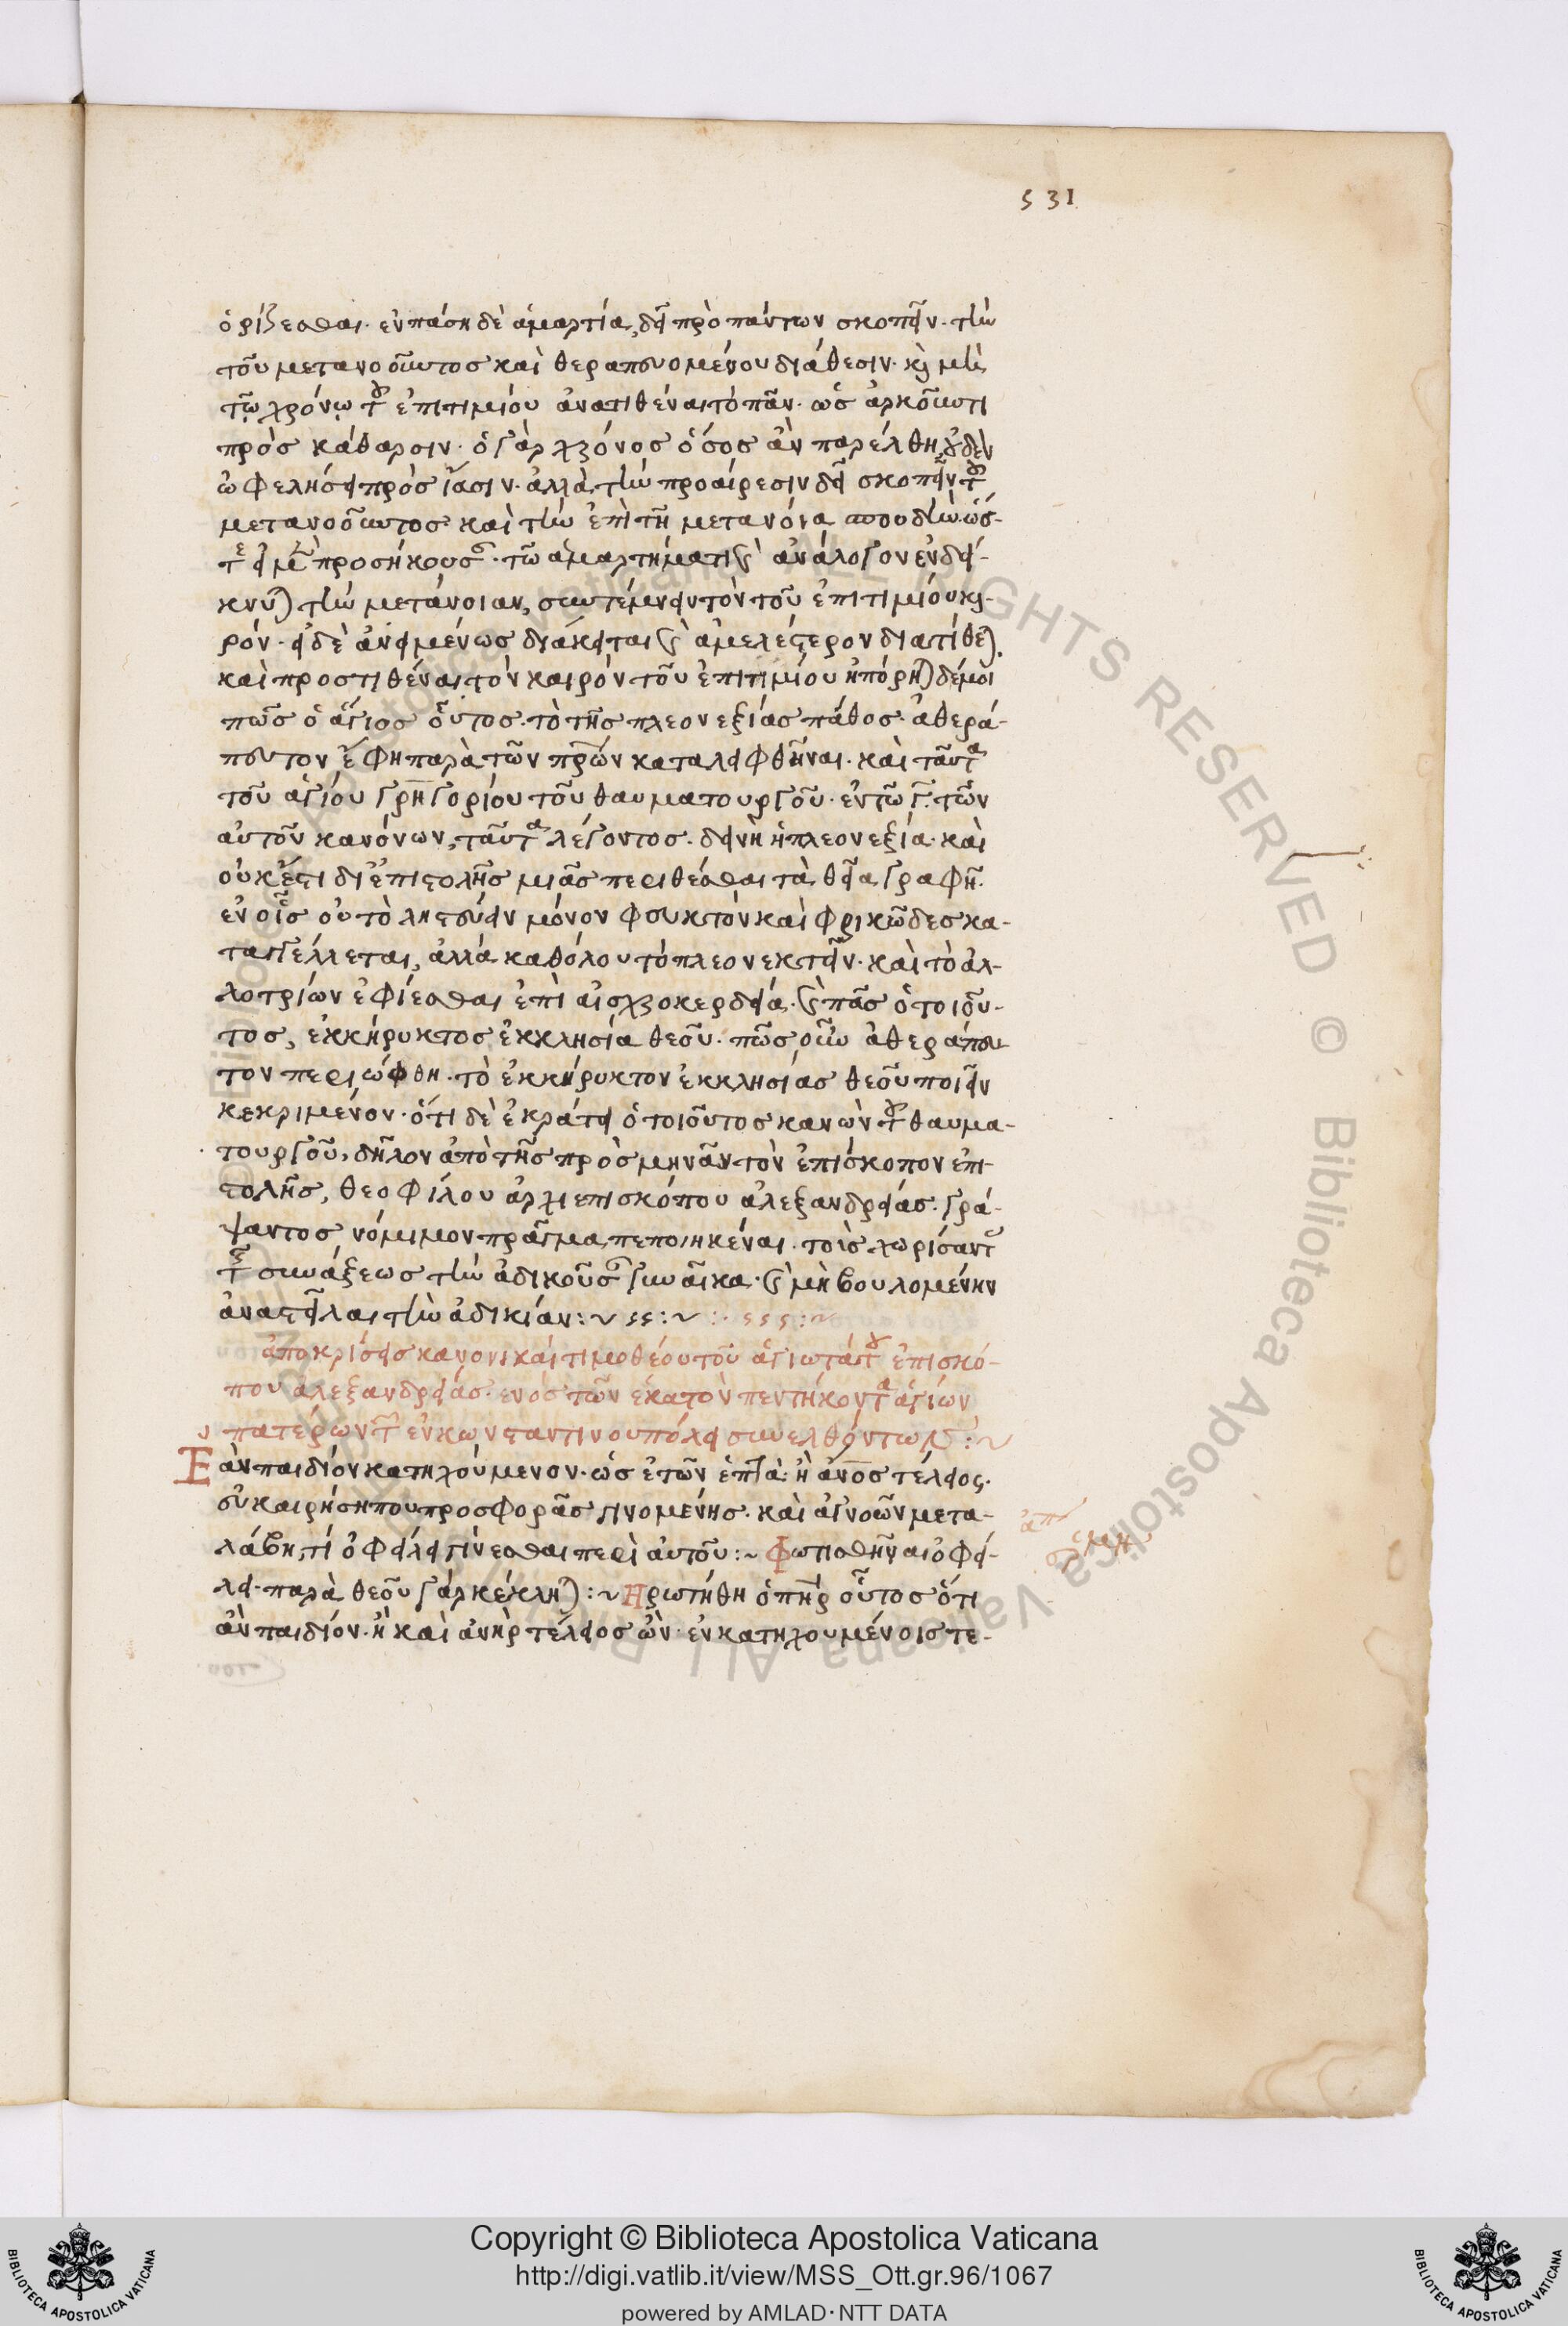 531
ὁρίζεσθαι· ἐν πάσῃ δὲ ἁμαρτία, δεῖ πρὸ πάντων σκοπεῖν· τὴν
τοῦ μετανοοῦντος καὶ θεραπευομένου διάθεσιν· κ̀ μὴ
τῶ χρόνω τοῦ ἐπιτιμίου ἀνατιθέναι τὸ πᾶν· ὡς ἀρκοῦντι
πρὸς κάθαρσιν· ὁ γὰρ χρόνος ὅσος ἂν παρέλθη, οὐδὲν
ὠφελήσει πρὸς ἴασιν· ἀλλὰ τὴν προαίρεσιν δεῖ σκοπεῖν τοῦ
μετανοοῦντος καὶ τὴν ἐπὶ τῆ μετανοία σπουδὴν· ὥσ-
τε εἰ μὲν προσήκουσαν τῶ ἁμαρτήματι κ̀ ἀνάλογον ἐνδεί-
κνυται τὴν μετάνοιαν, συντέμνειν τὸν τοῦ ἐπιτιμίου και-
ρόν· εἰ δὲ ἀνειμένως διάκειται κ̀ ἀμελέστερον διατίθεται
καὶ προστιθέναι τὸν καιρὸν τοῦ ἐπιτιμίου ἠπόρηται δέ μοι
πῶς ὁ ἅγιος οὗτος· τὸ τῆς πλεονεξίας πάθος· ἀθερά-
πευτον ἔφη παρὰ τῶν πρων καταλειφθῆναι· καὶ ταῦτα
τοῦ ἁγίου γρηγορίου τοῦ θαυματουργοῦ· ἐν τῶ γ̅· τῶν
αὐτοῦ κανόνων, ταῦτα λέγοντος· δεινὴ ἡ πλεονεξία· καὶ
οὐκ ἔστι δι' ἐπιστολῆς μιᾶς περιθέσθαι τὰ θεῖα γραφῆ·
ἐν οἷς οὐ τὸ ληστεύειν μόνον φευκτὸν καὶ φρικῶδες κα-
ταγγέλλεται, ἀλλὰ καθόλου τὸ πλεονεκτεῖν· καὶ τὸ ἀλ-
λοτρίων ἐφίεσθαι ἐπὶ αἰσχροκερδεία· κ̀ πᾶς ὁ τοιοῦ-
τος, ἐκκήρυκτος ἐκκλησία θεοῦ· πῶς οὖν ἀθεράπευ
τον περιώφθη· τὸ ἐκκήρυκτον ἐκκλησίας θεοῦ ποιεῖν
κεκριμένον· ὅτι δὲ ἐκράτει ὁ τοιοῦτος κανὼν τοῦ θαυμα-
τουργοῦ, δῆλον ἀπὸ τῆς πρὸς μηνᾶν τὸν ἐπίσκοπον ἐπι
στολῆς, θεοφίλου ἀρχιεπισκόπου ἀλεξανδρείας· γρά-
ψαντος νόμιμον πρᾶγμα πεποιηκέναι· τοὶς χωρίσαντας
τῆς συνάξεως τὴν ἀδικοῦσαν γυναῖκα· κ̀ μὴ βουλομένην
ἀναστεῖλαι τὴν ἀδικίαν:~
ἀποκρίσεις κανονικαὶ τιμοθέου τοῦ ἁγιωτάτου ἐπισκό-
που ἀλεξανδρείας· ἑνὸς τῶν ἑκατὸν πεντήκοντα ἁγίων
πατέρων τῶν ἐν κωνσταντινουπόλει συνελθόντων :~
Ἐὰν παιδίον κατηχούμενον· ὡς ἐτῶν ἑπτὰ· ἢ ἄνος τέλειος·
εὐκαιρήση που προσφορᾶς γινομένης· καὶ ἀγνοῶν μετα-
λάβη, τί ὀφείλει γίνεσθαι περὶ αὐτοῦ:~ Φωτισθῆναι ὀφεί-
λει· παρὰ θεοῦ γὰρ κέκληται:~ Ἠρωτήθη ὁ πηρ οὗτος ὅτι
ἐὰν παιδίον· ἢ καὶ ἀνὴρ τέλειος ὢν· ἐν κατηχουμένοις τε-
Copyright © Biblioteca Apostolica Vaticana
http://digi.vatlib.it/view/MSS_Ott.gr.96/1067
powered by AMLAD·NTT DATA